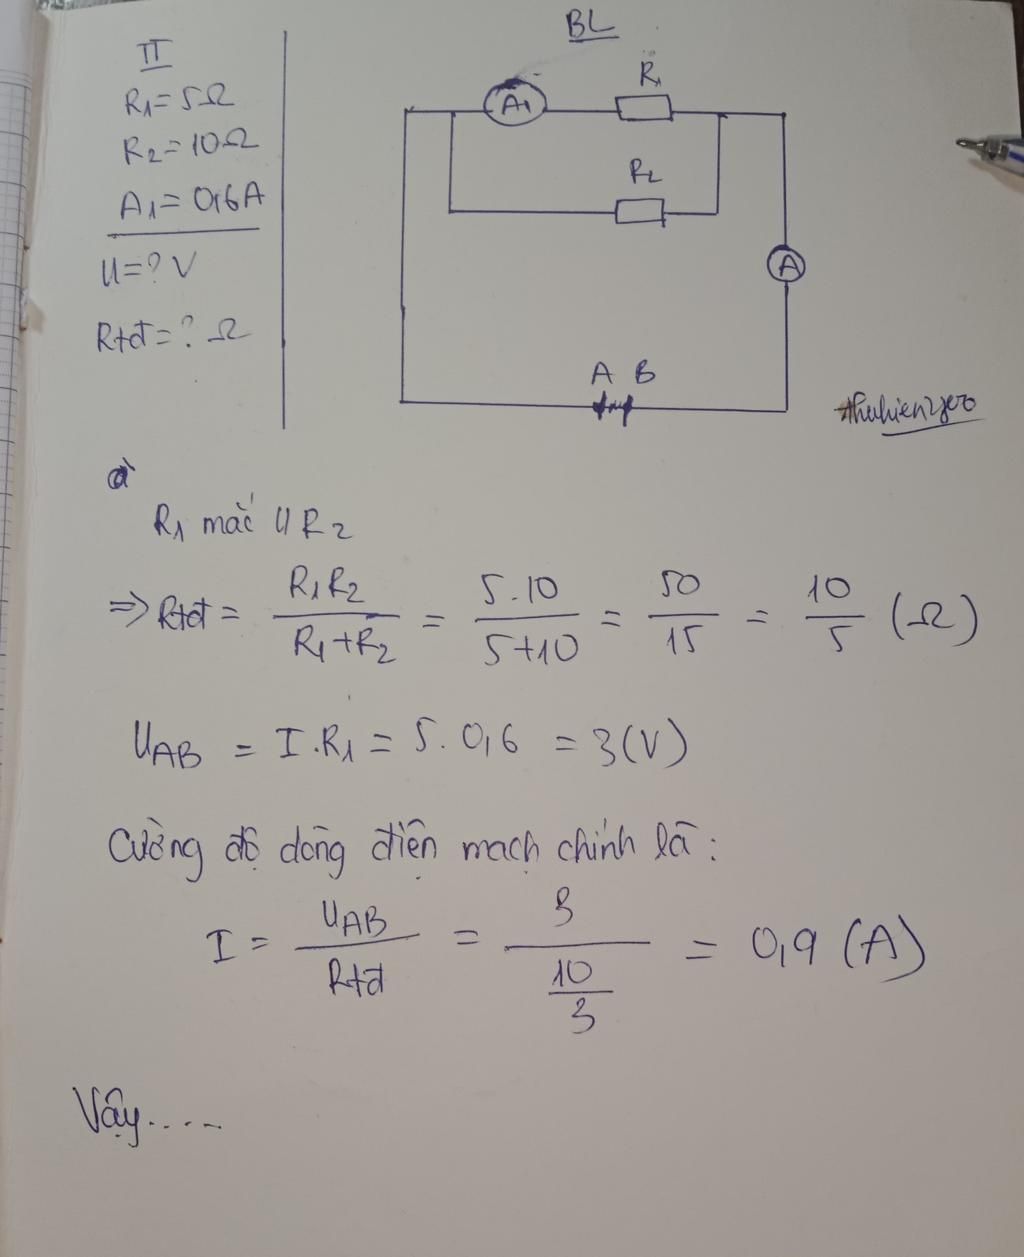 TT
R1 = 5Ω
R2 = 10Ω
A1 = 0,6A
U = ? V
Rtđ = ? Ω
BL
A1
R1
R2
A
A B
thuhienzero
a)
R1 mắc // R2
=> Rtđ = R1R2 / R1+R2 = 5.10 / 5+10 = 50 / 15 = 10 / 5 (Ω)
UAB = I.R1 = 5. 0,6 = 3 (V)
Cường độ dòng điện mạch chính là:
I = UAB / Rtđ = 3 / 10/3 = 0,9 (A)
Vậy.....